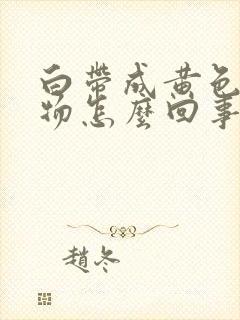 白帶成黃色
物怎麼回事
趙冬